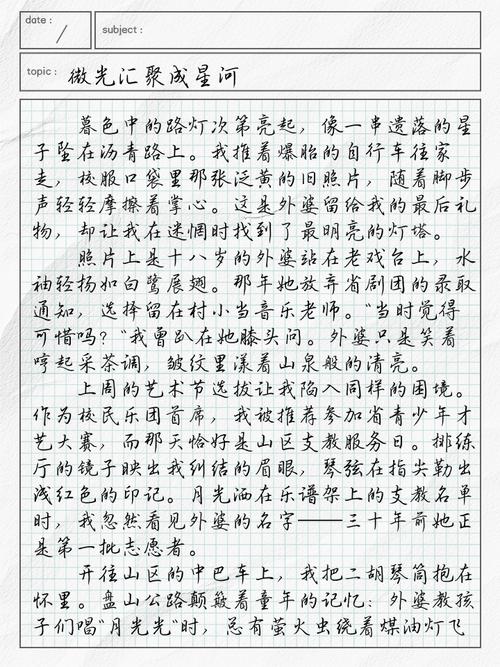 date :
subject :
topic : 微光汇聚成星河
暮色中的路灯次第亮起，像一串遗落的星
子坠在沥青路上。我推着爆胎的自行车往家
走，校服口袋里那张泛黄的旧照片，随着脚步
声轻轻摩擦着掌心。这是外婆留给我的最后礼
物，却让我在迷惘时找到了最明亮的灯塔。
照片上是十八岁的外婆站在老戏台上，水
袖轻扬如白鹭展翅。那年她放弃省剧团的录取
通知，选择留在村小当音乐老师。"当时觉得
可惜吗？"我曾趴在她膝头问。外婆只是笑着
哼起采茶调，皱纹里漾着山泉般的清亮。
上周的艺术节选拔让我陷入同样的困境。
作为校民乐团首席，我被推荐参加省青少年才
艺大赛，而那天恰好是山区支教服务日。排练
厅的镜子映出我纠结的眉眼，琴弦在指尖勒出
浅红色的印记。月光洒在乐谱架上的支教名单
时，我忽然看见外婆的名字——三十年前她正
是第一批志愿者。
开往山区的中巴车上，我把二胡琴筒抱在
怀里。盘山公路颠簸着童年的记忆：外婆教孩
子们唱"月光光"时，总有萤火虫绕着煤油灯飞